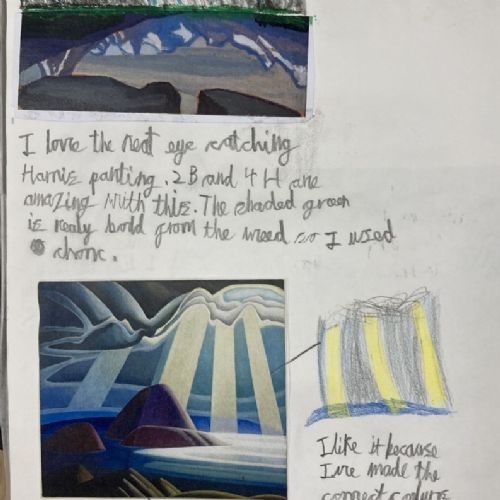 I love the neat eye catching
Harris panting. 2B and 4H are
amazing with this. The shaded green
is realy bold from the
so I used
I like it because
I've made the
correct colours